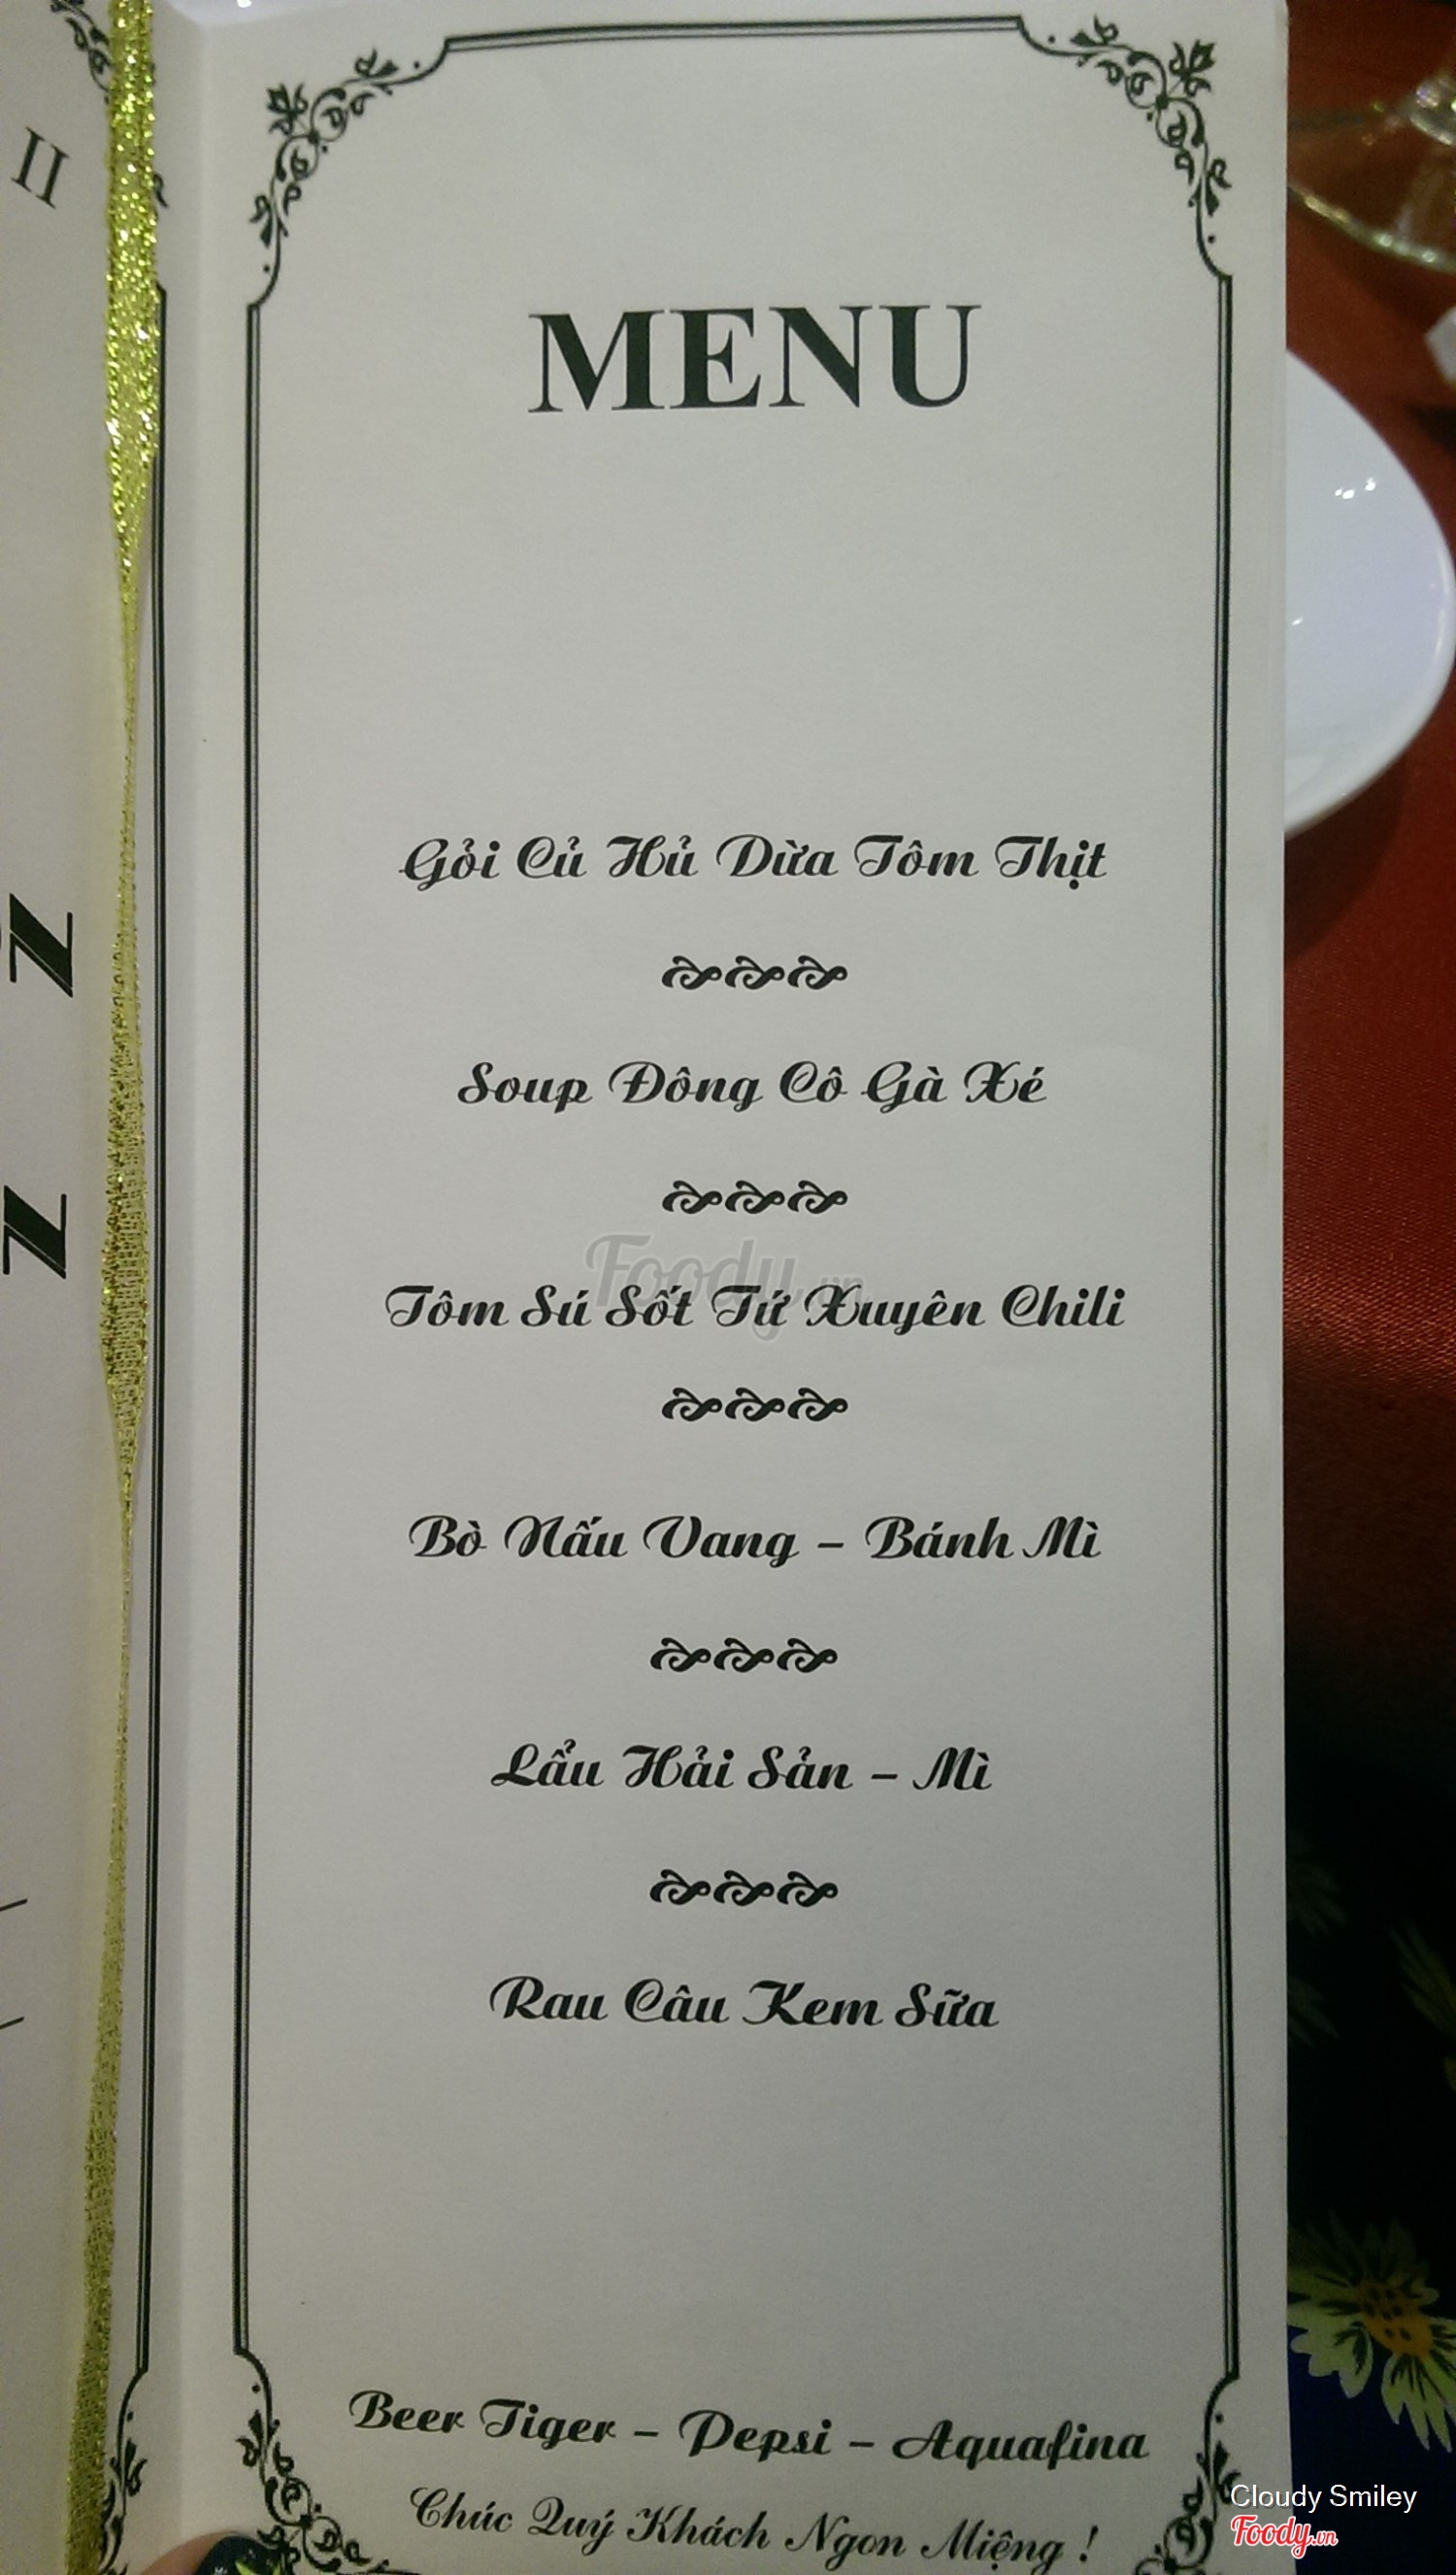 II
Z
Z
MENU
Gỏi Củ Hủ Dừa Tôm Thịt
Soup Đông Cô Gà Xé
Foody.vn
Tôm Sú Sốt Tứ Xuyên Chili
Bò Nấu Vang – Bánh Mì
Lẩu Hải Sản – Mì
Rau Câu Kem Sữa
Beer Tiger – Pepsi – Aquafina
Chúc Quý Khách Ngon Miệng !
Cloudy Smiley
Foody.vn